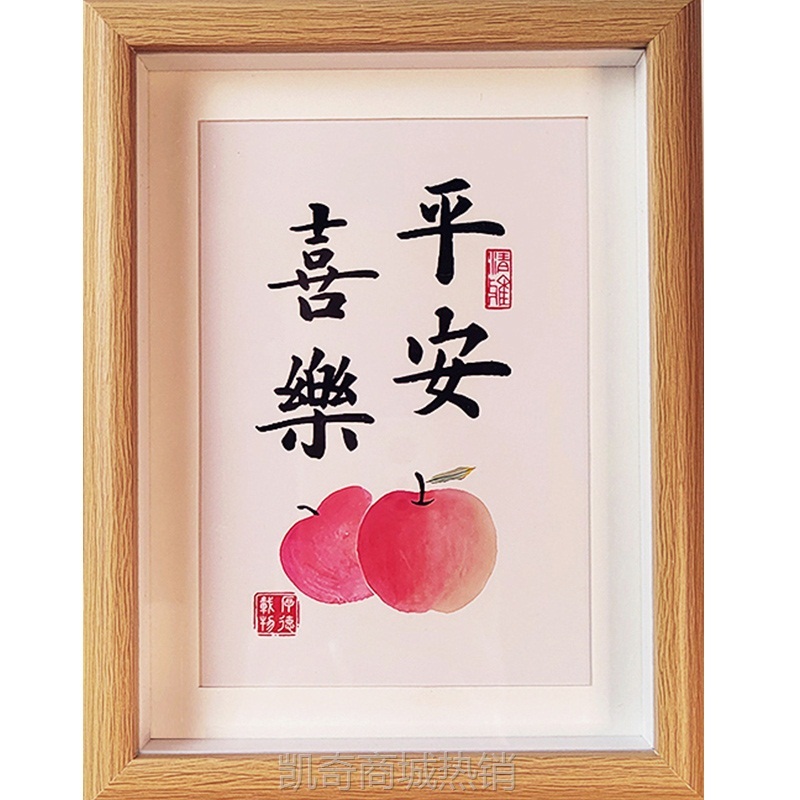 平安
喜樂
清雅
厚德
載物
凯奇商城热销